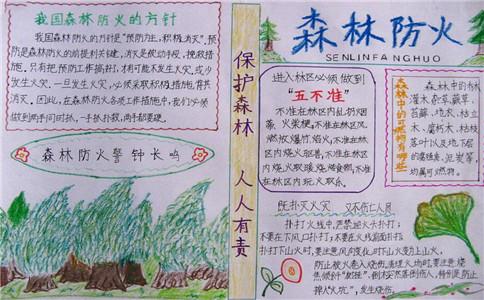 我国森林防火的方针
我国森林防火的方针是"预防为主,积极消灭"。预
防是森林防火的前提和关键,消灭是被动手段、挽救措
施。只有把预防工作搞好,才有可能不发生火灾,或少
发生火灾。一旦发生火灾,必须采取积极措施,背其
消灭。因此,在森林防火各项工作措施中,我们必须
做到两手同时抓,一手抓扑救,两手都要硬。
森林防火警钟长鸣
保护森林 人人有责
森林防火
SENLINFANGHUO
进入林区必须做到
"五不准"
不准在林区内乱扔烟
蒂、火柴梗,不准在林区风
燃放爆竹、焰火,不准在林
区内烧火驱兽,不准在林区
内烧火取暖、烧烤食物,不准
在林区内玩火取乐。
森林中的可燃物有哪些
森林中的乔木、
灌木、杂草、蕨草、
苔藓、地衣、枯立
木、腐朽木、枯枝
落叶以及地下层
的腐殖质、泥炭等,
均属可燃物。
既扑灭火灾 又不伤亡人员
扑打火线中,严禁迎火头扑打;
不要在下风口扑打;不要在火线前面扑打;
扑打下山火时,要注意风向变化,时下山火变为上山火,
防止被火卷入烧伤,清理火地时,要注意烧
焦倾针"放挂"、倒木突然落倒伤人,特别是防止
掉入"火坑",发生烧伤。